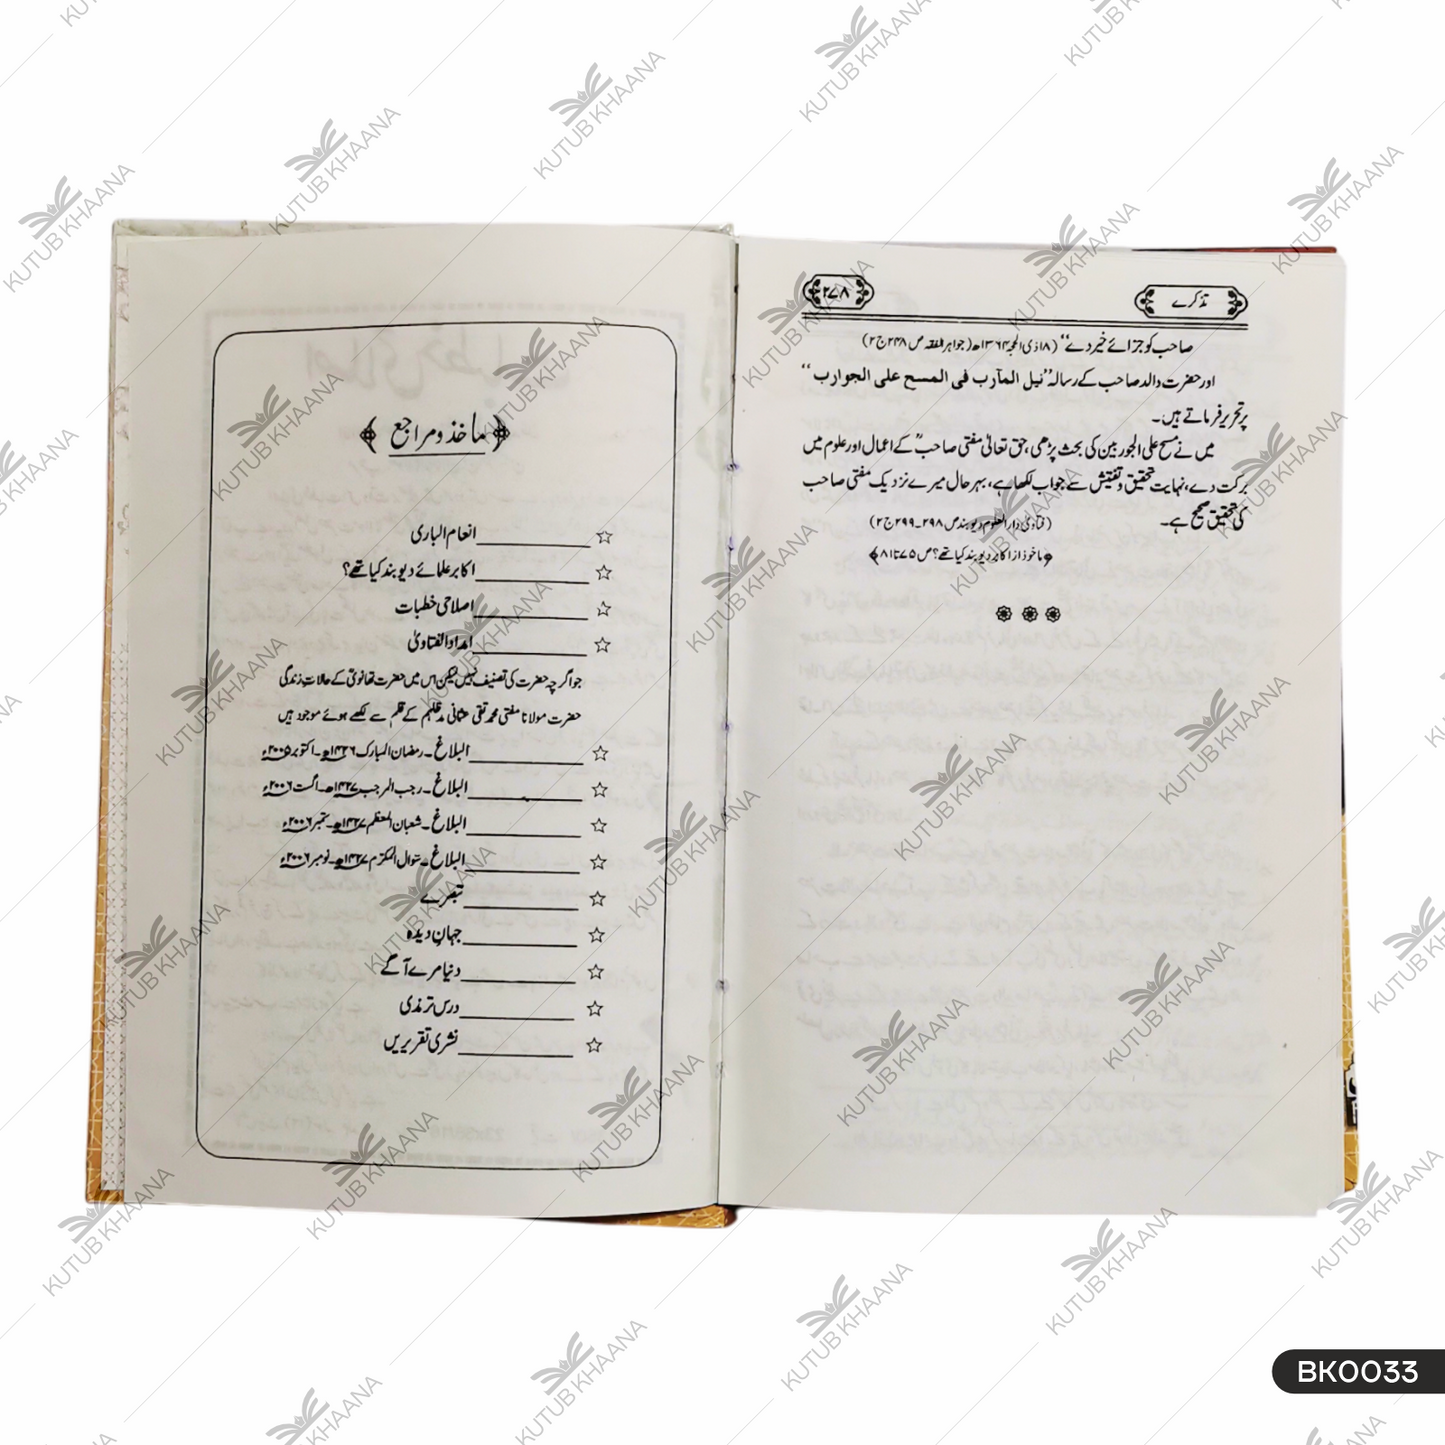 تذکرے
۲۷۸
صاحب کو جزائے خیر دے“ (۱۸ ذی الحجہ ۱۳۶۴ھ) (جواہر الفقہ ص ۲۴۸ ج ۲)
اور حضرت والد صاحب کے رسالہ ”نیل المآرب فی المسح علی الجوارب“
پر تحریر فرماتے ہیں۔
میں نے مسح علی الجوربین کی بحث پڑھی، حق تعالیٰ مفتی صاحبؒ کے اعمال اور علوم میں
برکت دے، نہایت تحقیق و تفتیش سے جواب لکھا ہے، بہر حال میرے نزدیک مفتی صاحب
کی تحقیق صحیح ہے۔
(فتاویٰ دار العلوم دیوبند ص ۲۹۸۔۲۹۹ ج ۲)
﴿ماخوذ از اکابر دیوبند کیا تھے؟ ص ۷۵ تا ۸۱﴾
﴿ماخذ و مراجع﴾
☆ انعام الباری
☆ اکابر علمائے دیوبند کیا تھے؟
☆ اصلاحی خطبات
☆ امداد الفتاویٰ
جو اگرچہ حضرت کی تصنیف نہیں لیکن اس میں حضرت تھانویؒ کے حالاتِ زندگی
حضرت مولانا مفتی محمد تقی عثمانی مدظلہم کے قلم سے لکھے ہوئے موجود ہیں
☆ البلاغ۔ رمضان المبارک ۱۴۲۶ھ۔ اکتوبر ۲۰۰۵ء
☆ البلاغ۔ رجب المرجب ۱۴۲۷ھ۔ اگست ۲۰۰۶ء
☆ البلاغ۔ شعبان المعظم ۱۴۲۷ھ۔ ستمبر ۲۰۰۶ء
☆ البلاغ۔ شوال المکرّم ۱۴۲۷ھ۔ نومبر ۲۰۰۶ء
☆ تبصرے
☆ جہانِ دیدہ
☆ دنیا مرے آگے
☆ درس ترمذی
☆ نشری تقریریں
KUTUB KHAANA
BK0033